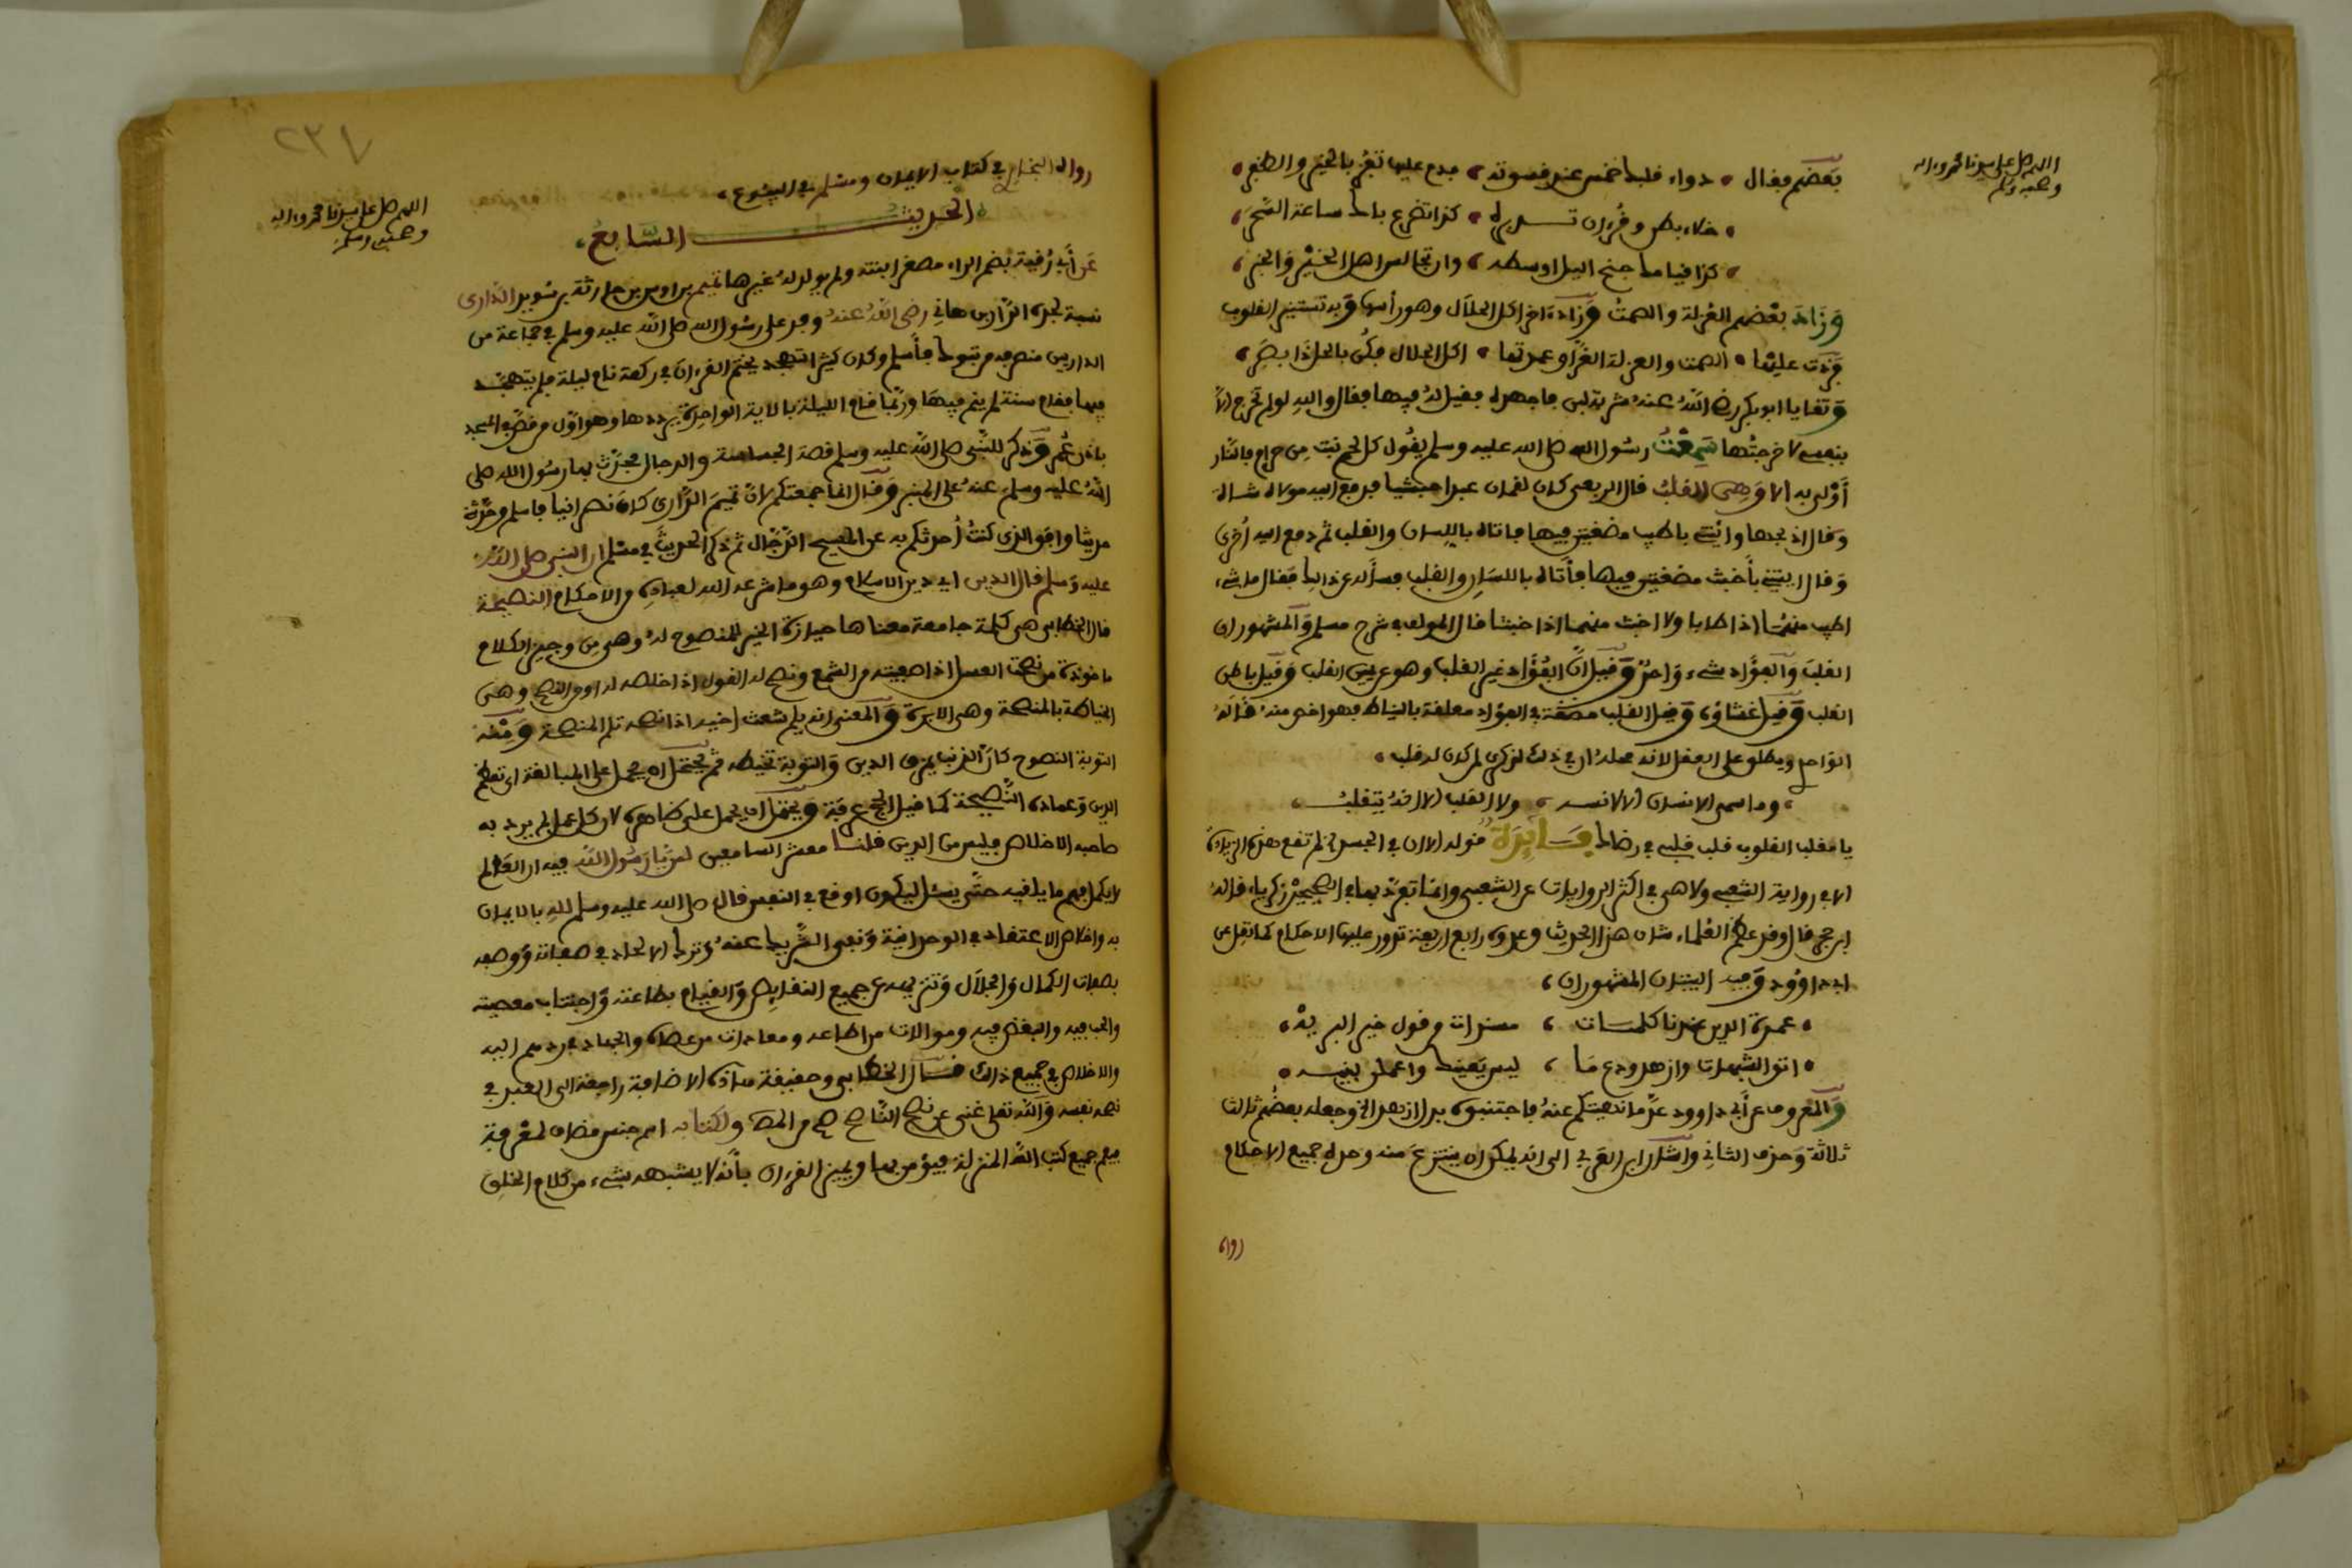 اللهم صل على سيدنا محمد وءاله
وصحبه وسلم
بعضهم فقال • دواء قلبك خمس عند قسوته • فدم عليها تفز بالخير والظفر •
• خلاء بطن وقرءان تدبره • كذا تضرع باك ساعة السحر •
• كذا قيامك جنح اليل اوسطه • وان تجالس اهل الخير والخبر •
وزاد بعضهم العزلة والصمت وزاد ءاخر اكل الحلال وهو رأسها وبه تستنير القلوب
فزدت عليها • الصمت والعزلة الغرا وعدتها • اكل الحلال فكن بالحل ذا بصر •
وتقايا ابو بكر رضي الله عنه شربة لبن فاجهده فقيل له فيها فقال والله لو لم تخرج الا
بنفسي لاخرجتها سمعت رسول الله صلى الله عليه وسلم يقول كل لحم نبت من حرام فالنار
أولى به الا وهي القلب قال الربعي كان لقمان عبدا حبشيا فدفع اليه مولاه شاة
وقال اذبحها وائتني باطيب مضغتين فيها فاتاه باللسان والقلب ثم دفع اليه أخرى
وقال ايتني بأخبث مضغتين فيها فأتاه باللسان والقلب فسأله عن ذلك فقال ما شيء
اطيب منهما اذا طابا ولا اخبث منهما اذا خبثا قال المؤلف في شرح مسلم والمشهور ان
القلب والفؤاد شيء واحد وقيل ان الفؤاد غير القلب وهو عين القلب وقيل باطن
القلب وقيل غشاؤه وقيل القلب مضغة في الفؤاد معلقة بالنياط فهو اخص منه قاله
الواحدي ويطلق على العقل لانه محله ان في ذلك لذكرى لمن كان له قلب •
• وما سمي الانسان الا لانسه • ولا القلب الا انه يتقلب •
يا مقلب القلوب قلب قلبي في رضاك فائدة قوله الا وان في الجسد الخ لم تقع هذه الزيادة
الا في رواية الشعبي ولا هي في اكثر الروايات عن الشعبي وانما تفرد بها في الصحيحين زكرياء قاله
ابن حجر قال وقد عظم العلماء شان هذا الحديث وعدوه رابع اربعة تدور عليها الاحكام كما نقل عن
ابي داوود وفيه البيتان المشهوران •
• عمدة الدين عندنا كلمات • مسندات من قول خير البريه •
• اتق الشبهات وازهد ودع ما • ليس يعنيك واعملن بنيه •
والمعروف عن أبي داوود عد ما نهيتكم عنه فاجتنبوه بدل ازهد الخ وجعله بعضهم ثالث
ثلاثة وحذف الثاني واشار ابن العربي الى انه يمكن ان ينتزع منه وحده جميع الاحكام
رواه
٢٣٧
اللهم صل على سيدنا محمد وءاله
وصحبه وسلم
رواه البخاري في كتاب الايمان ومسلم في البيوع •
الحديث السابع •
عن أبي رقية بضم الراء مصغر ابنته ولم يولد له غيرها تميم بن اوس بن خارثة بن سويد الداري
نسبة لجده الدار بن هاني رضي الله عنه وفد على رسول الله صلى الله عليه وسلم في جماعة من
الداريين منصرفه من تبوك فأسلم وكان كثير التهجد يختم القرءان في ركعة نام ليلة فلم يتهجد
فيها فقام سنة لم ينم فيها وربما قام الليلة بالاية الواحدة يرددها وهو اول من قص في المسجد
باذن عمر وذكر للنبي صلى الله عليه وسلم قصة الجساسة والدجال فحدث بها رسول الله صلى
الله عليه وسلم عنه على المنبر وقال انما جمعتكم لان تميم الداري كان نصرانيا فاسلم وحدثه
حديثا وافق الذي كنت أحدثكم به عن المسيح الدجال ثم ذكر الحديث في مسلم ان النبي صلى الله
عليه وسلم قال الدين اي دين الاسلام وهو ما شرعه الله لعباده من الاحكام النصيحة
قال الخطابي هي كلمة جامعة معناها حيازة الخير للمنصوح له وهي من وجيز الكلام
ماخوذة من نصحت العسل اذا صفيته من الشمع ونصح له القول اذا اخلصه له او من النصح وهي
الخياطة بالمنصحة وهي الابرة والمعنى انه يلم شعث اخيه اذا نصحه تلم المنصحة ومنه
التوبة النصوح كان الذنب يمزق الدين والتوبة تخيطه ثم يحتمل ان يحمل على المبالغة اي معظم
الدين وعماده النصيحة كما قيل الحج عرفة ويحتمل ان يحمل على ظاهره لان كل عمل لم يرد به
صاحبه الاخلاص فليس من الدين قلنا معشر السامعين لمن يا رسول الله فيه ان العالم
لا يكمل فهم ما يلقيه حتى يسئل ليكون اوقع في النفس قال صلى الله عليه وسلم لله بالايمان
به واخلاص الاعتقاد في الوحدانية ونفي الشريك عنه وترك الالحاد في صفاته ووصفه
بصفات الكمال والجلال وتنزيهه عن جميع النقايص والقيام بطاعته واجتناب معصيته
والحب فيه والبغض فيه وموالات من اطاعه ومعادات من عصاه والجهاد في دينه اليه
والاخلاص في جميع ذلك قال الخطابي وحقيقة هذه الاضافة راجعة الى العبد في
نصحه نفسه والله تعلى غني عن نصح الناصح ولكتابه اسم جنس مضاف لمعرفة
فيعم جميع كتب الله المنزلة فيؤمن بها ويميز القرءان بأنه لا يشبهه شيء من كلام الخلق